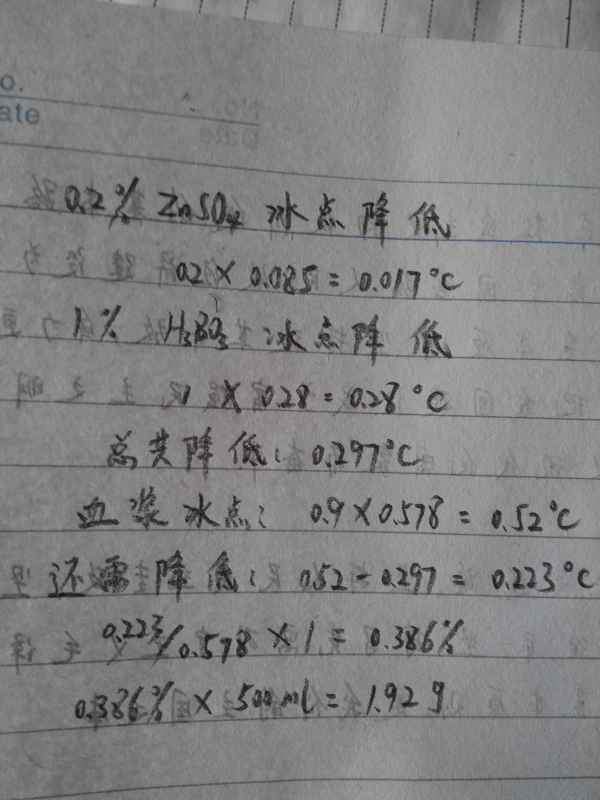 o.
ate
0.2% ZnSO4 冰点降低
0.2 × 0.085 = 0.017°C
1% H3BO3 冰点降低
1 × 0.28 = 0.28°C
总共降低: 0.297°C
血浆冰点: 0.9 × 0.578 = 0.52°C
还需降低: 0.52 - 0.297 = 0.223°C
0.223/0.578 × 1 = 0.386%
0.386% × 500ml = 1.92g